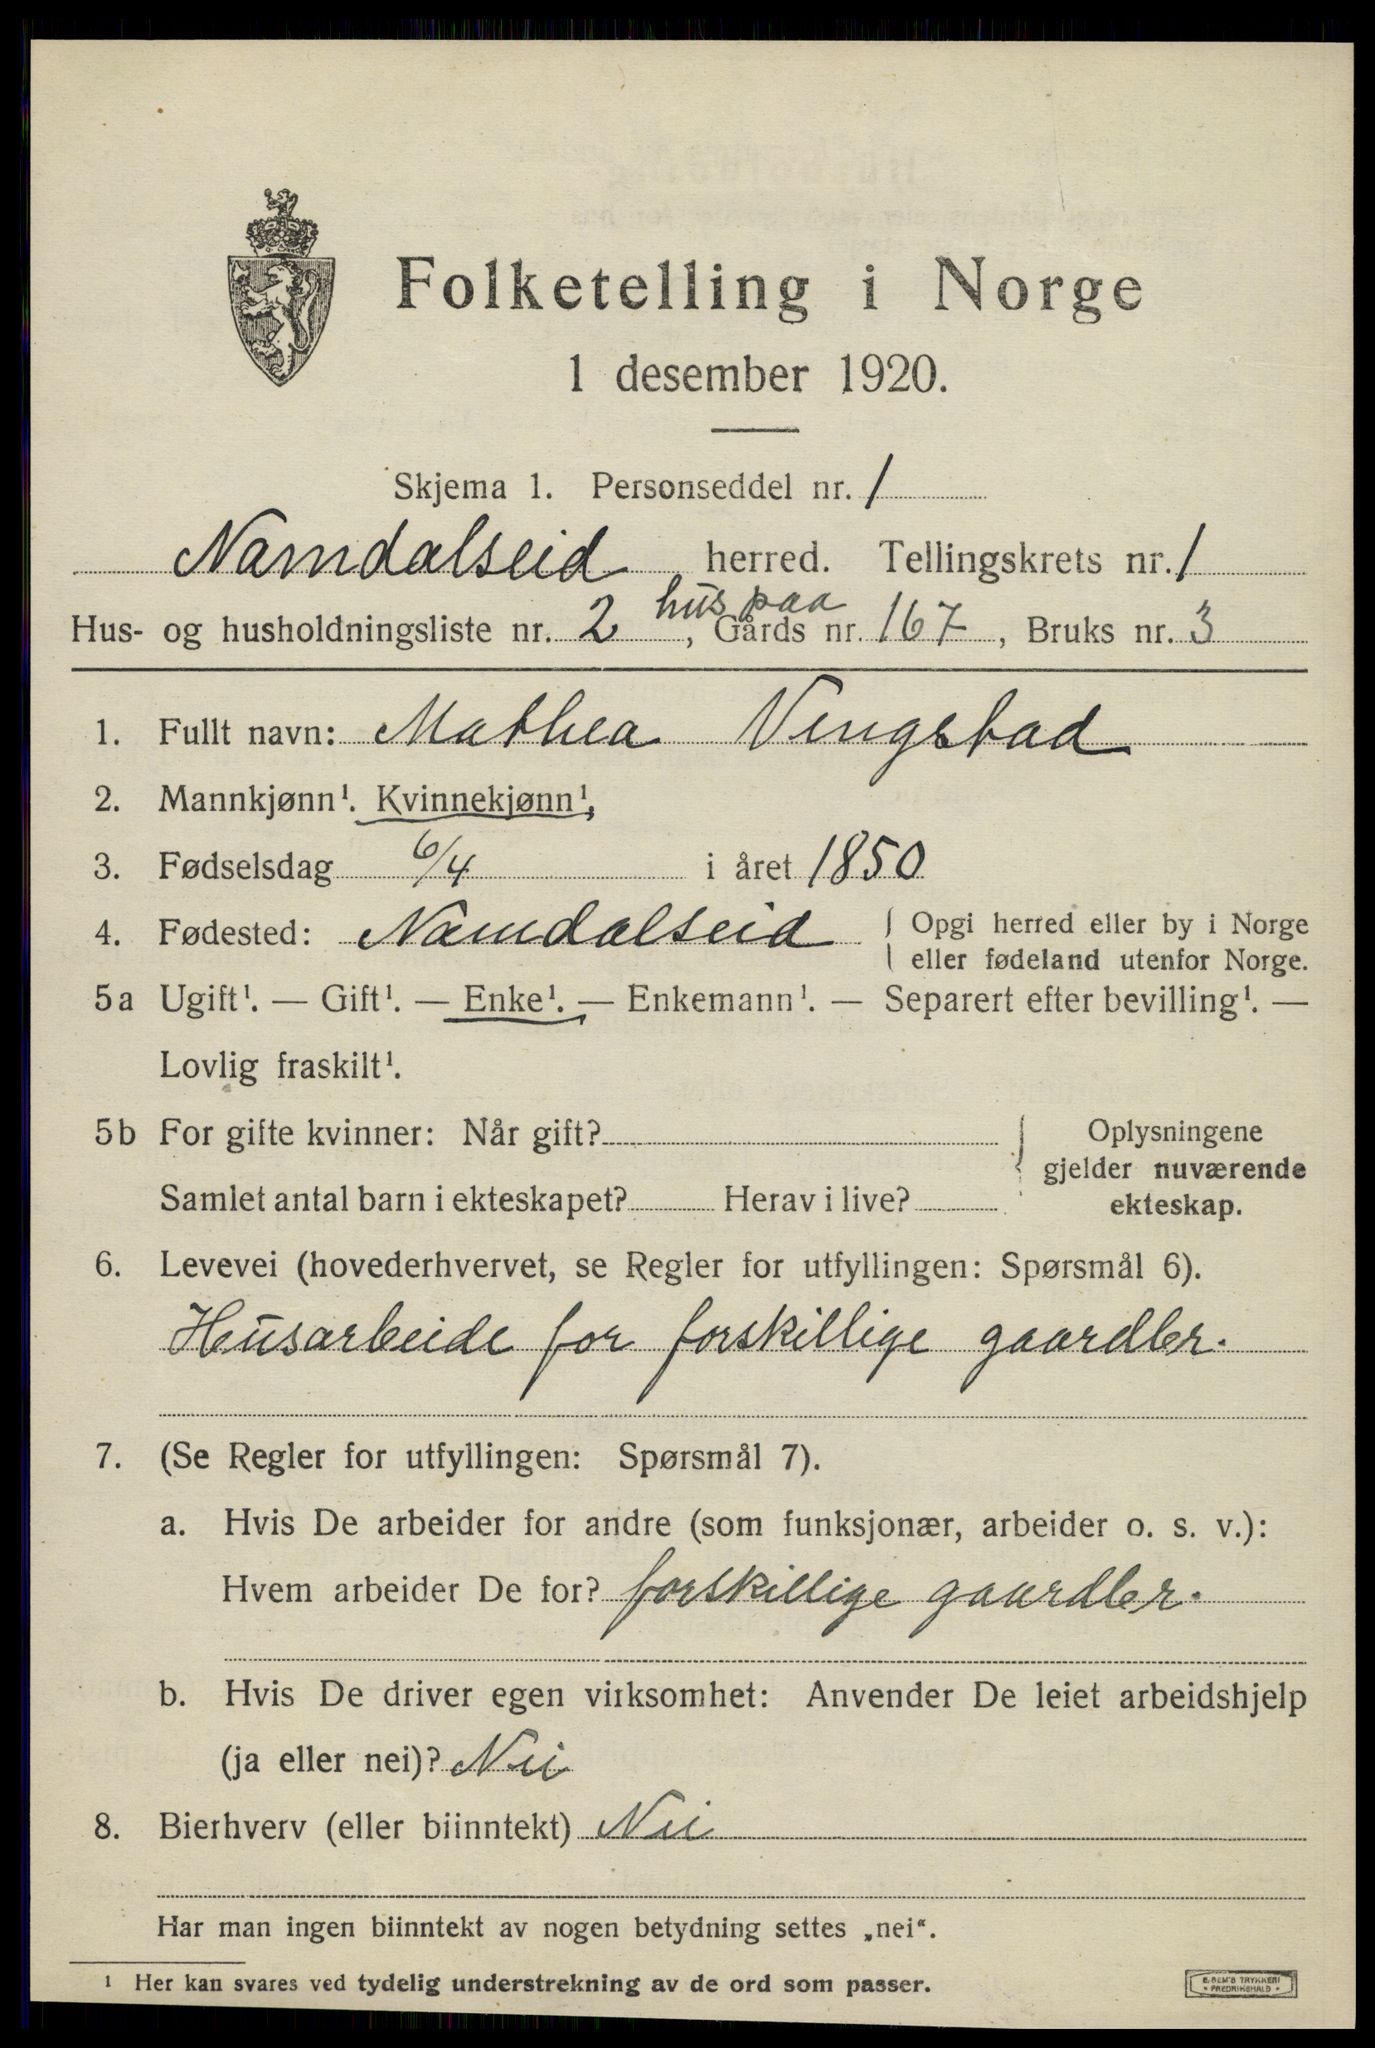 Folketelling i Norge
1 desember 1920.
Skjema 1. Personseddel nr. 1
Namdalseid herred. Tellingskrets nr. 1
hus paa
Hus- og husholdningsliste nr. 2, Gårds nr. 167, Bruks nr. 3
1. Fullt navn: Mathea Vengstad
2. Mannkjønn¹. Kvinnekjønn¹,
3. Fødselsdag 6/4 i året 1850
4. Fødested: Namdalseid { Opgi herred eller by i Norge
eller fødeland utenfor Norge.
5a Ugift¹. — Gift¹. — Enke¹. — Enkemann¹. — Separert efter bevilling¹. —
Lovlig fraskilt¹.
5b For gifte kvinner: Når gift? { Oplysningene
gjelder nuværende
Samlet antal barn i ekteskapet? Herav i live? ekteskap.
6. Levevei (hovederhvervet, se Regler for utfyllingen: Spørsmål 6).
Husarbeide for forskillige gaardbr.
7. (Se Regler for utfyllingen: Spørsmål 7).
a. Hvis De arbeider for andre (som funksjonær, arbeider o. s. v.):
Hvem arbeider De for? forskillige gaardbr.
b. Hvis De driver egen virksomhet: Anvender De leiet arbeidshjelp
(ja eller nei)? Nei
8. Bierhverv (eller biinntekt) Nei
Har man ingen biinntekt av nogen betydning settes „nei“.
¹ Her kan svares ved tydelig understrekning av de ord som passer.
E. SEM'S TRYKKERI
• FREDRIKSHALD •